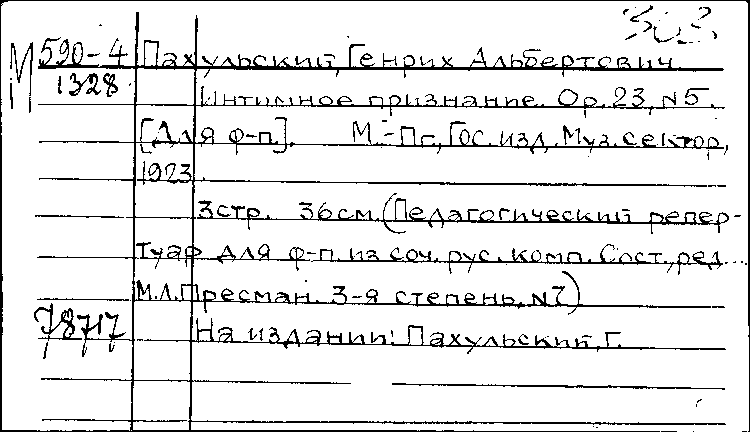 303.
М 590-4 Пахульский, Генрих Альбертович.
1328 Интимное признание. Op. 23, N5.
[Для ф-п.]. М.-Пг., Гос. изд. Муз. сектор,
1923.
3 стр. 36 см. (Педагогический репер-
туар для ф-п. из соч. рус. комп. Сост., ред...
М.Л. Пресман. 3-я степень, N7)
78717 На издании: Пахульский, Г.